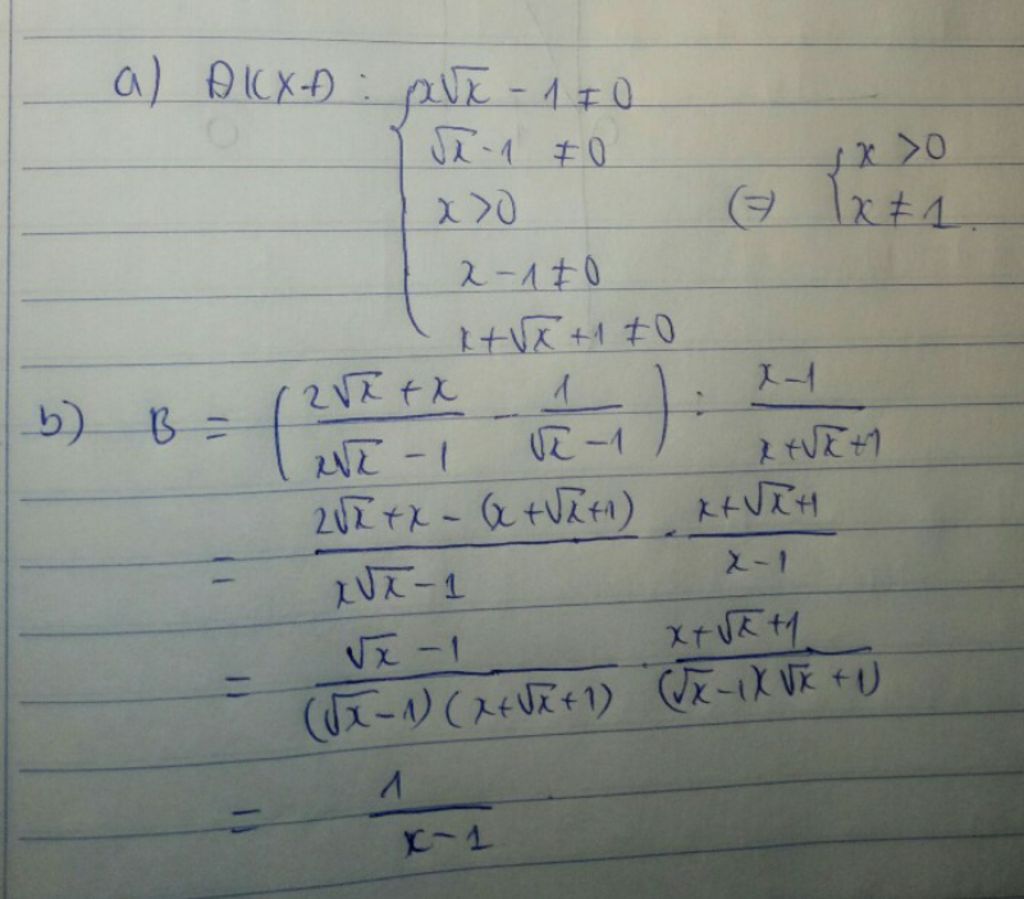 a) ĐKXĐ : { x√x - 1 ≠ 0
√x - 1 ≠ 0
x > 0
x - 1 ≠ 0
x + √x + 1 ≠ 0
(=) { x > 0
x ≠ 1.
b) B = ( (2√x + x)/(x√x - 1) - 1/(√x - 1) ) : (x - 1)/(x + √x + 1)
= (2√x + x - (x + √x + 1))/(x√x - 1) . (x + √x + 1)/(x - 1)
= (√x - 1)/((√x - 1)(x + √x + 1)) . (x + √x + 1)/((√x - 1)(√x + 1))
= 1/(x - 1)